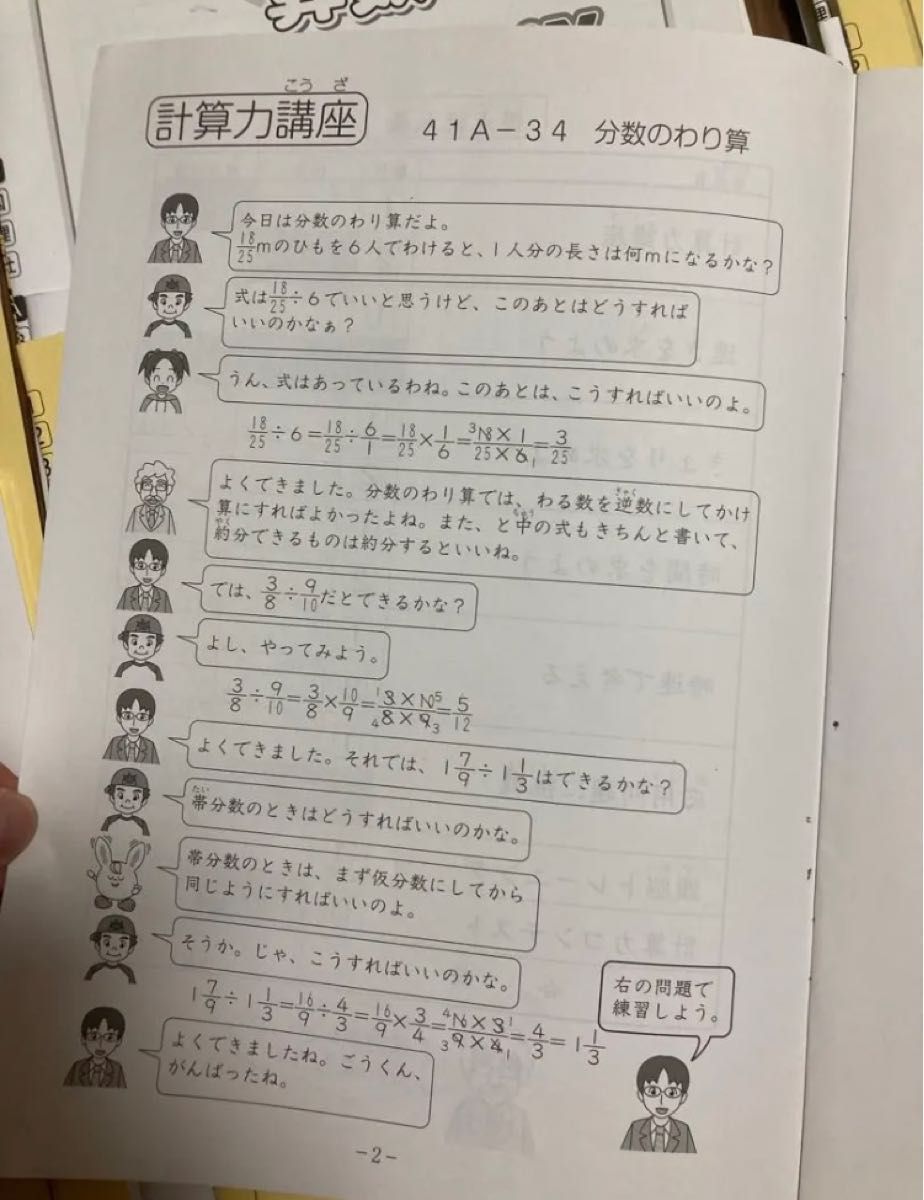 算数
こうざ
計算力講座
41A-34 分数のわり算
今日は分数のわり算だよ。
18/25mのひもを6人でわけると、1人分の長さは何mになるかな?
式は18/25÷6でいいと思うけど、このあとはどうすれば
いいのかなぁ?
うん、式はあっているわね。このあとは、こうすればいいのよ。
18/25÷6=18/25÷6/1=18/25×1/6=³18×1/25×6₁=3/25
ぎゃく
よくできました。分数のわり算では、わる数を逆数にしてかけ
ちゅう
算にすればよかったよね。また、と中の式もきちんと書いて、
やく
約分できるものは約分するといいね。
では、3/8÷9/10だとできるかな?
よし、やってみよう。
3/8÷9/10=3/8×10/9=¹3×10⁵/₄8×9₃=5/12
よくできました。それでは、1 7/9÷1 1/3はできるかな?
たい
帯分数のときはどうすればいいのかな。
帯分数のときは、まず仮分数にしてから
同じようにすればいいのよ。
そうか。じゃ、こうすればいいのかな。
1 7/9÷1 1/3=16/9÷4/3=16/9×3/4=⁴16×3¹/₃9×4₁=4/3=1 1/3
よくできましたね。ごうくん、
がんばったね。
右の問題で
練習しよう。
-2-